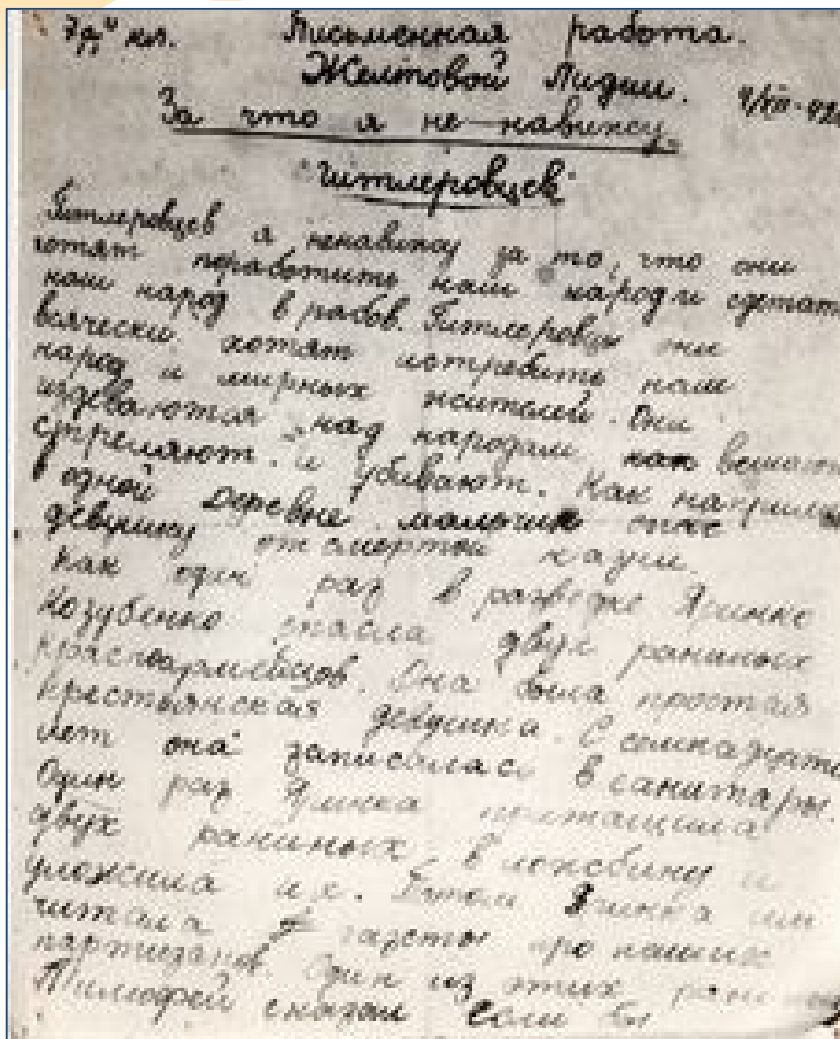 7 "А" кл. Письменная работа.
Желтовой Лидии.
За что я не-навижу
гитлеровцев
Гитлеровцев я ненавижу за то, что они
хотят поработить наш народ и сделать
наш народ в рабов. Гитлеровцы они
всячески хотят истребить наш
народ и мирных жителей. Они
издеваются над народами вешают
стреляют и убивают. Как например
одной деревне мальчик спас
девушку от смертой казни.
Как один раз в разведке Яринка
Козубенко спасла двух раниных
красноармейцов. Она была простая
крестьянская девушка. С семнадцати
лет она записалась в санитары.
Один раз Яринка притащила
двух раниных в ложбину и
уложила их. Потом Яринка им
читала газеты про наших
партизанов. Один из этих раниных
Тимофей сказал если бы